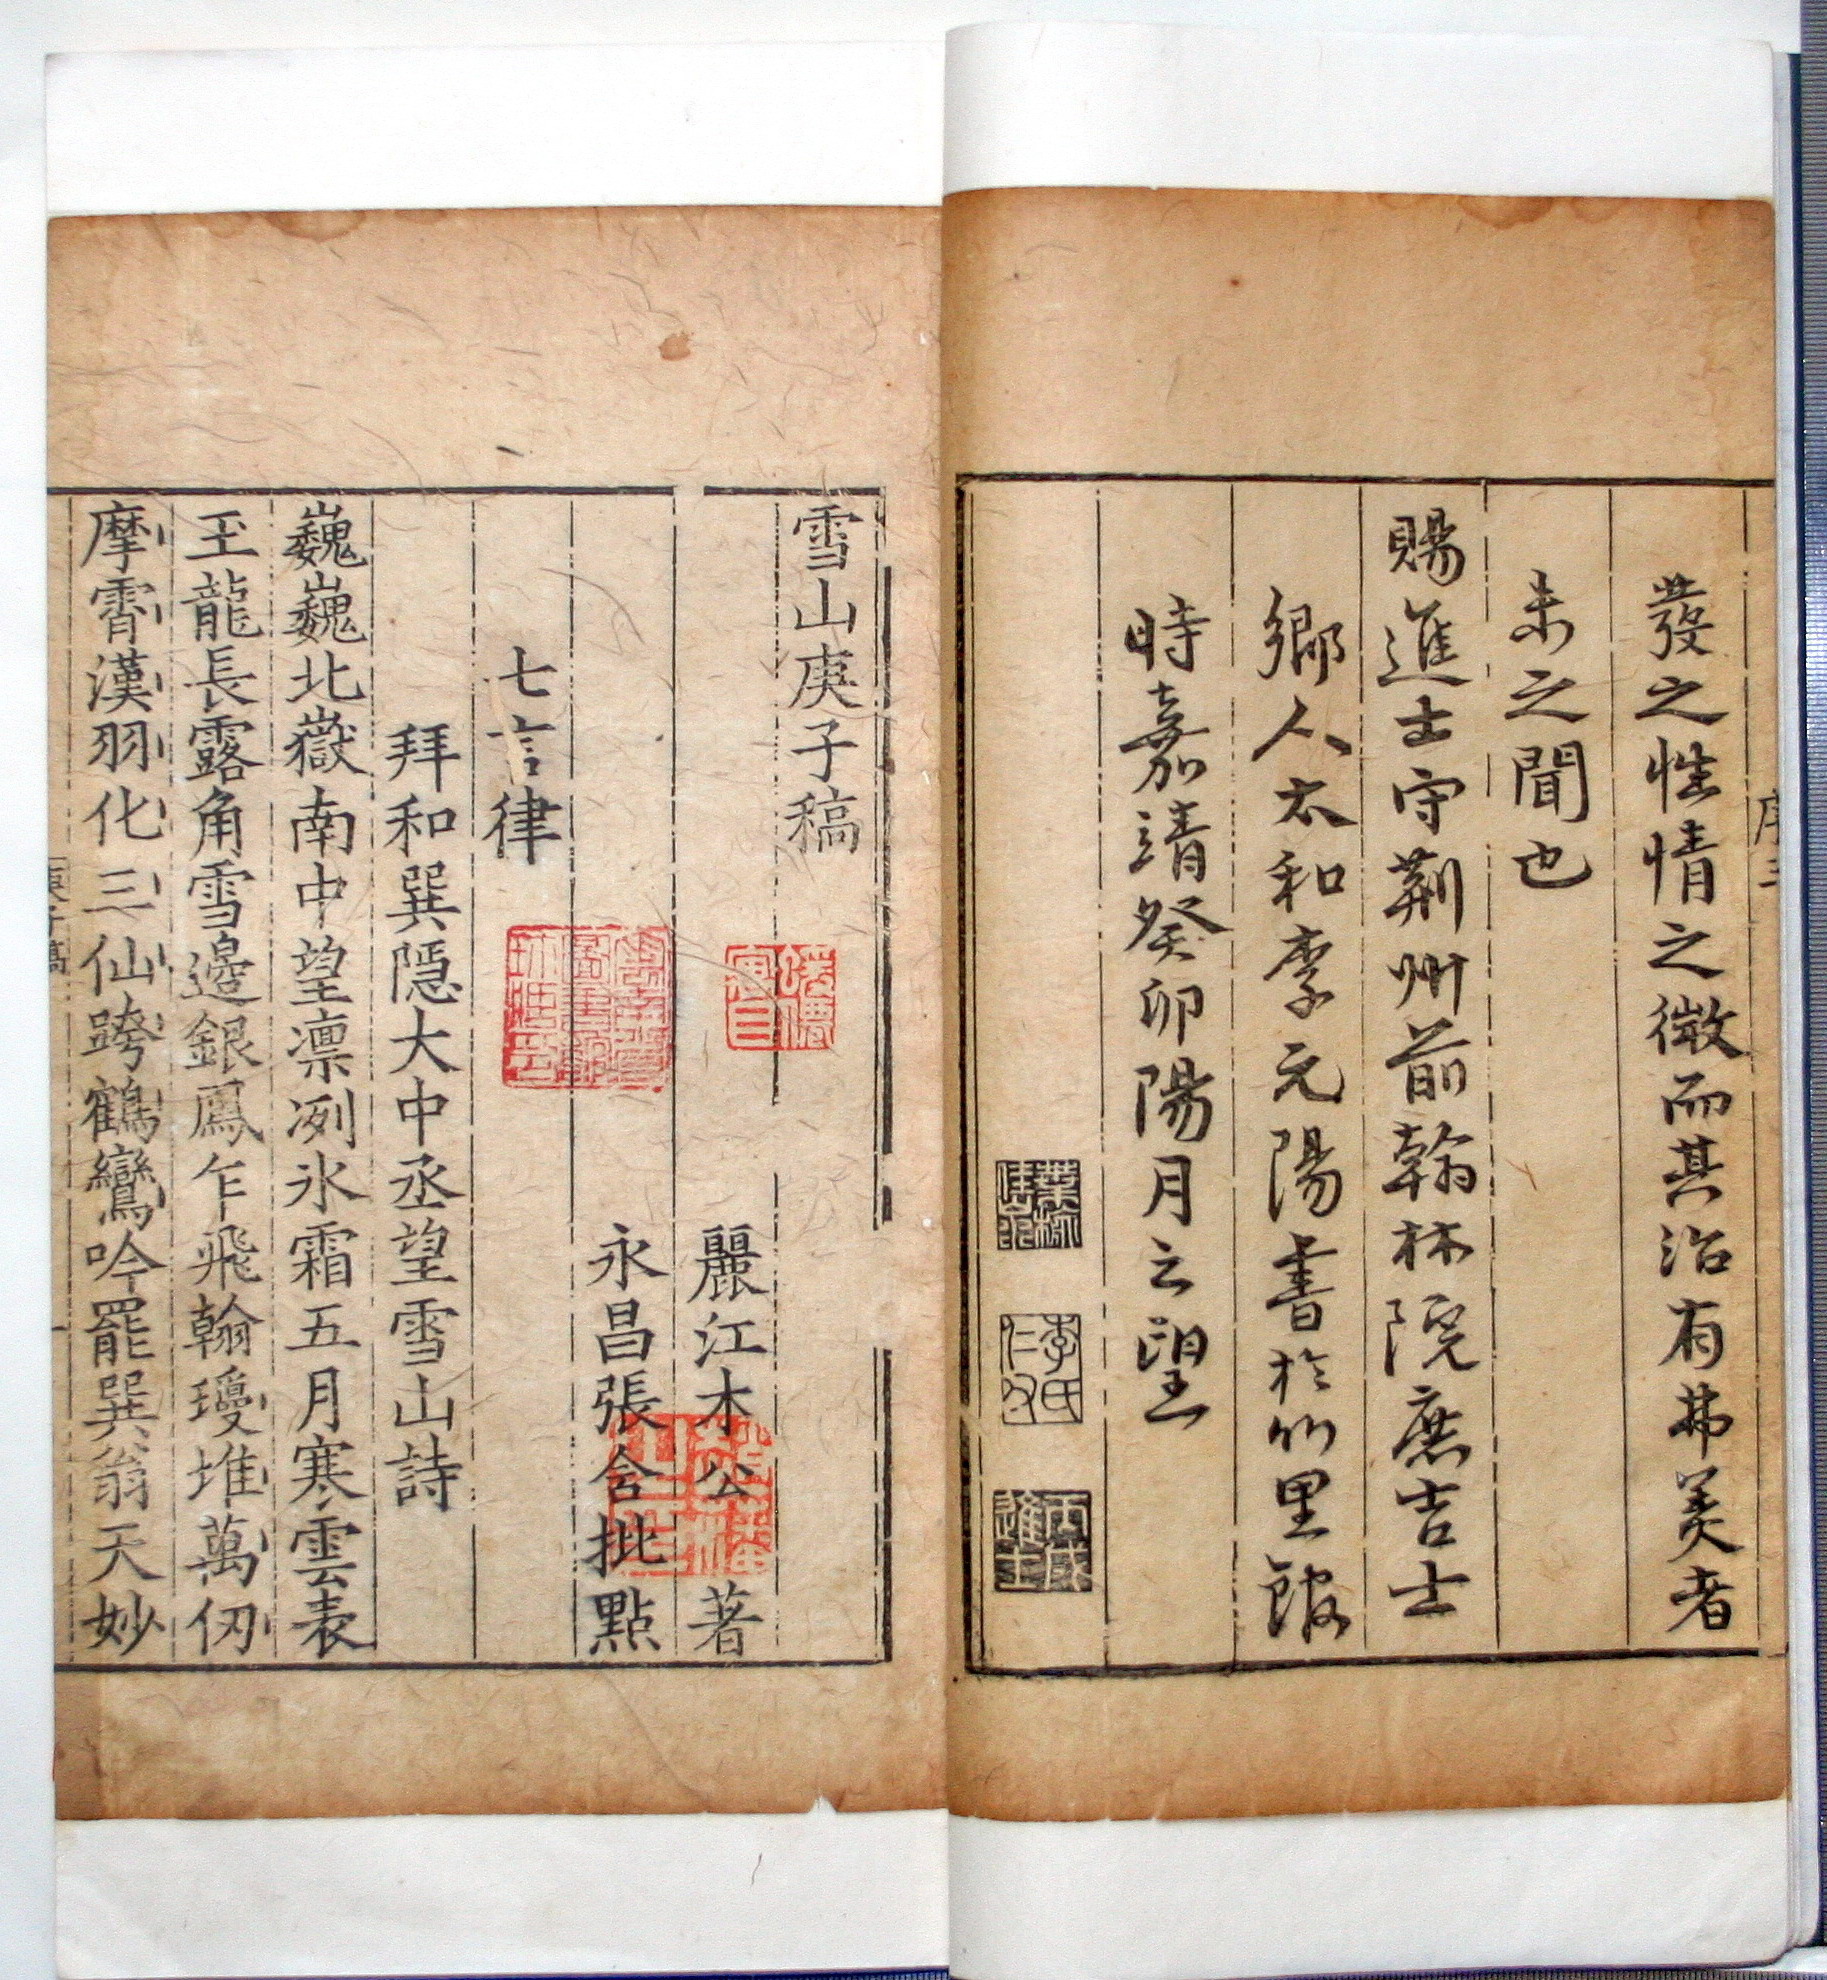 發之性情之微而其治有弗美者
未之聞也
賜進士守荆州前翰林院庶吉士
鄉人太和李元陽書於竹里館
時嘉靖癸卯陽月之望
李氏
仁父
丙戌
進士
雪山庚子稿
麗江木公著
永昌張含批點
七言律
拜和巽隱大中丞望雪山詩
巍巍北嶽南中望凛冽氷霜五月寒雲表
玉龍長露角雪邉銀鳳乍飛翰瓊堆萬仭
摩霄漢羽化三仙跨鶴鸞吟罷巽翁天妙